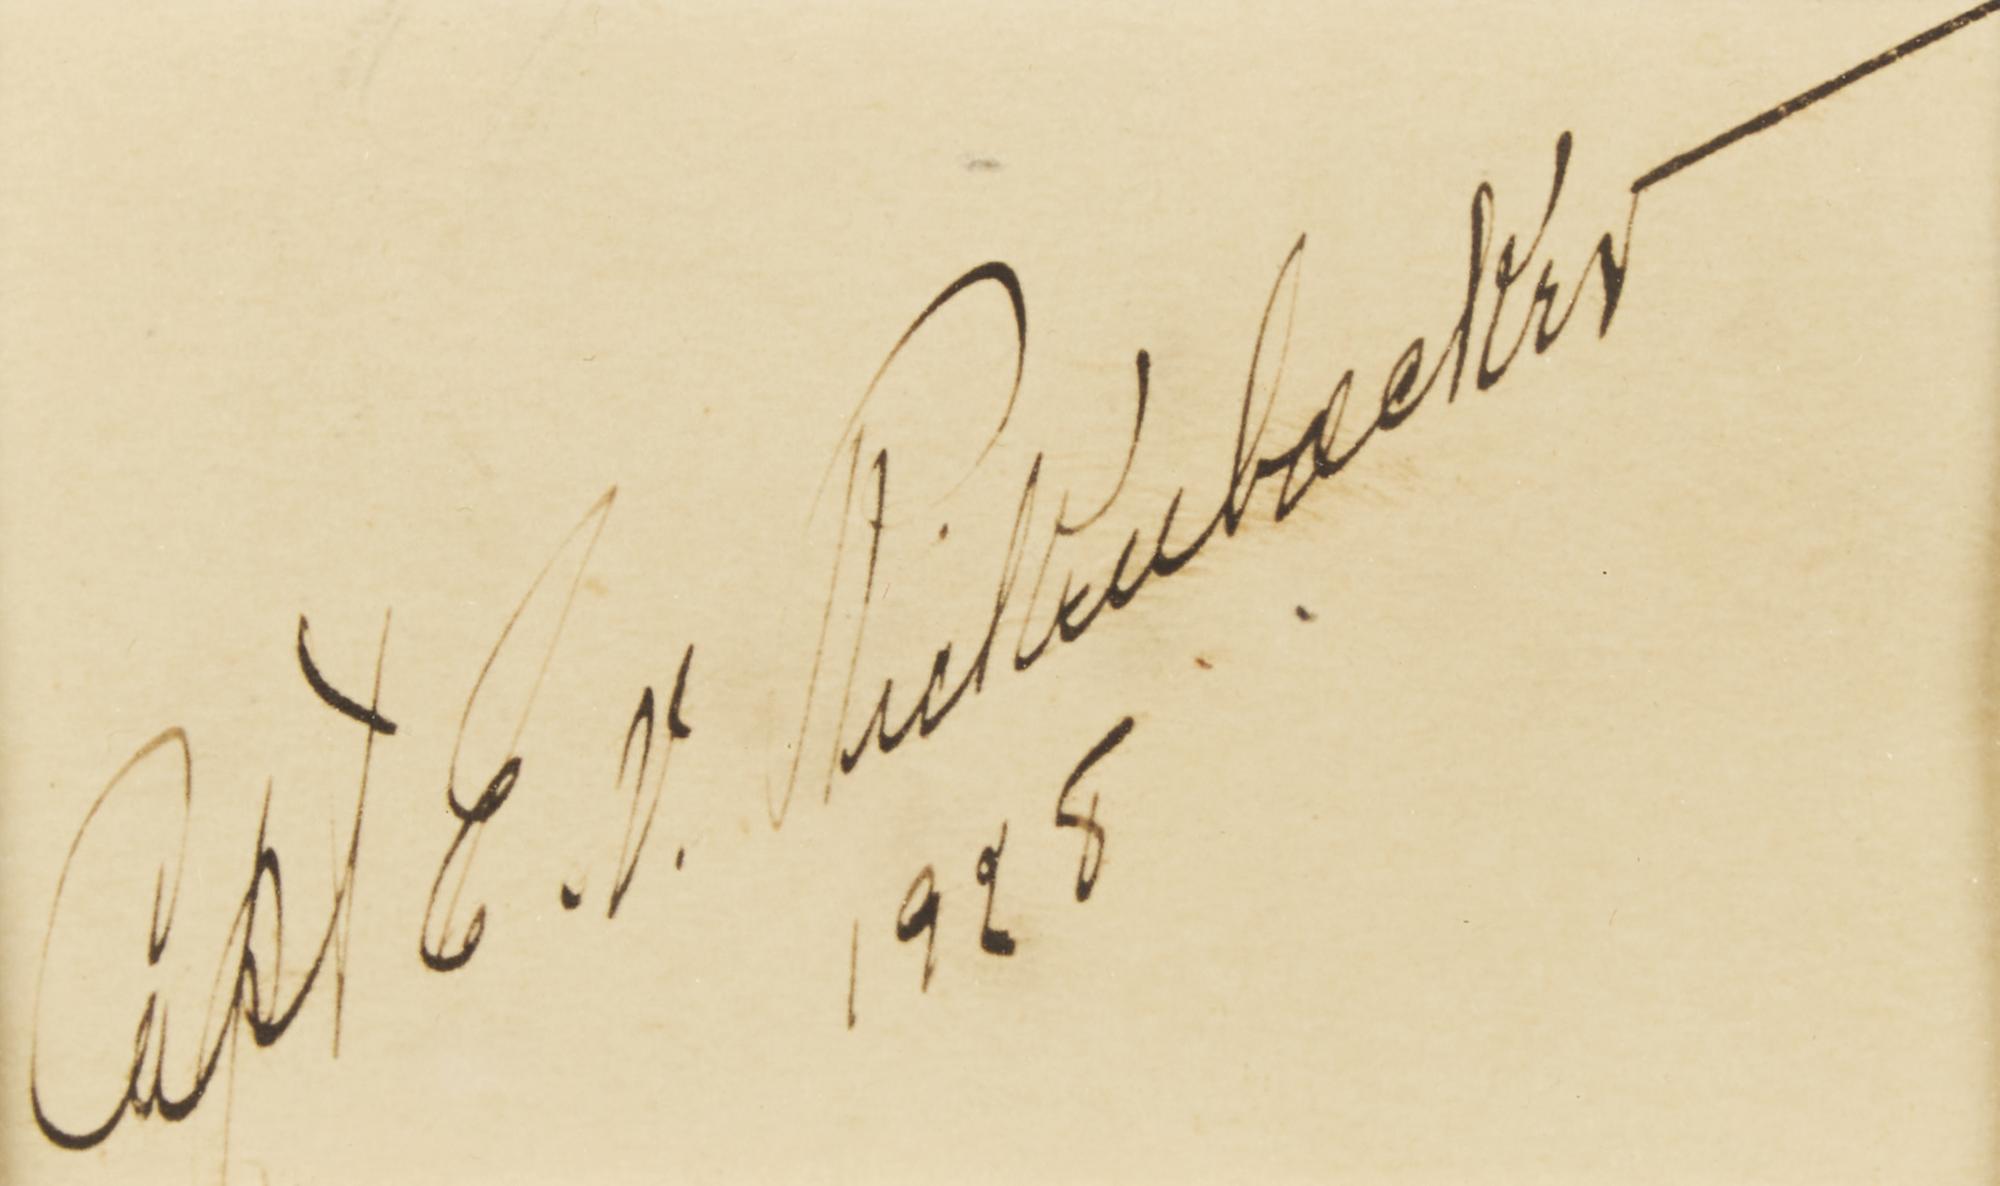 Capt E. V. Rickenbacker
1928